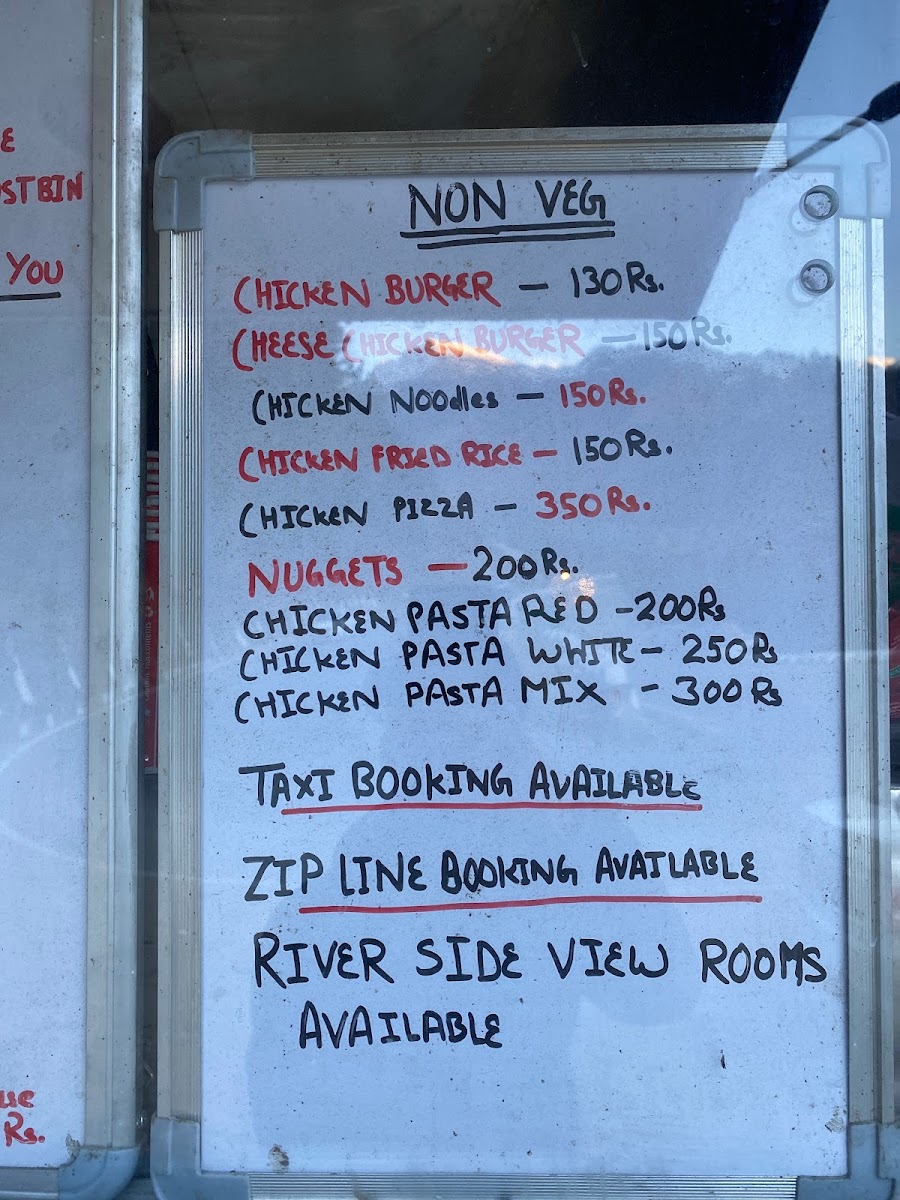 E
STBIN
YOU
Rs.
NON VEG
CHICKEN BURGER — 130 Rs.
CHEESE CHICKEN BURGER — 150 Rs.
CHICKEN NOOdles — 150 Rs.
CHICKEN FRIED RICE — 150 Rs.
CHICKEN PIZZA — 350 Rs.
NUGGETS — 200 Rs.
CHICKEN PASTA RED - 200 Rs
CHICKEN PASTA WHITE - 250 Rs
CHICKEN PASTA MIX - 300 Rs
TAXI BOOKING AVAILABLE
ZIP LINE BOOKING AVAILABLE
RIVER SIDE VIEW ROOMS
AVAILABLE